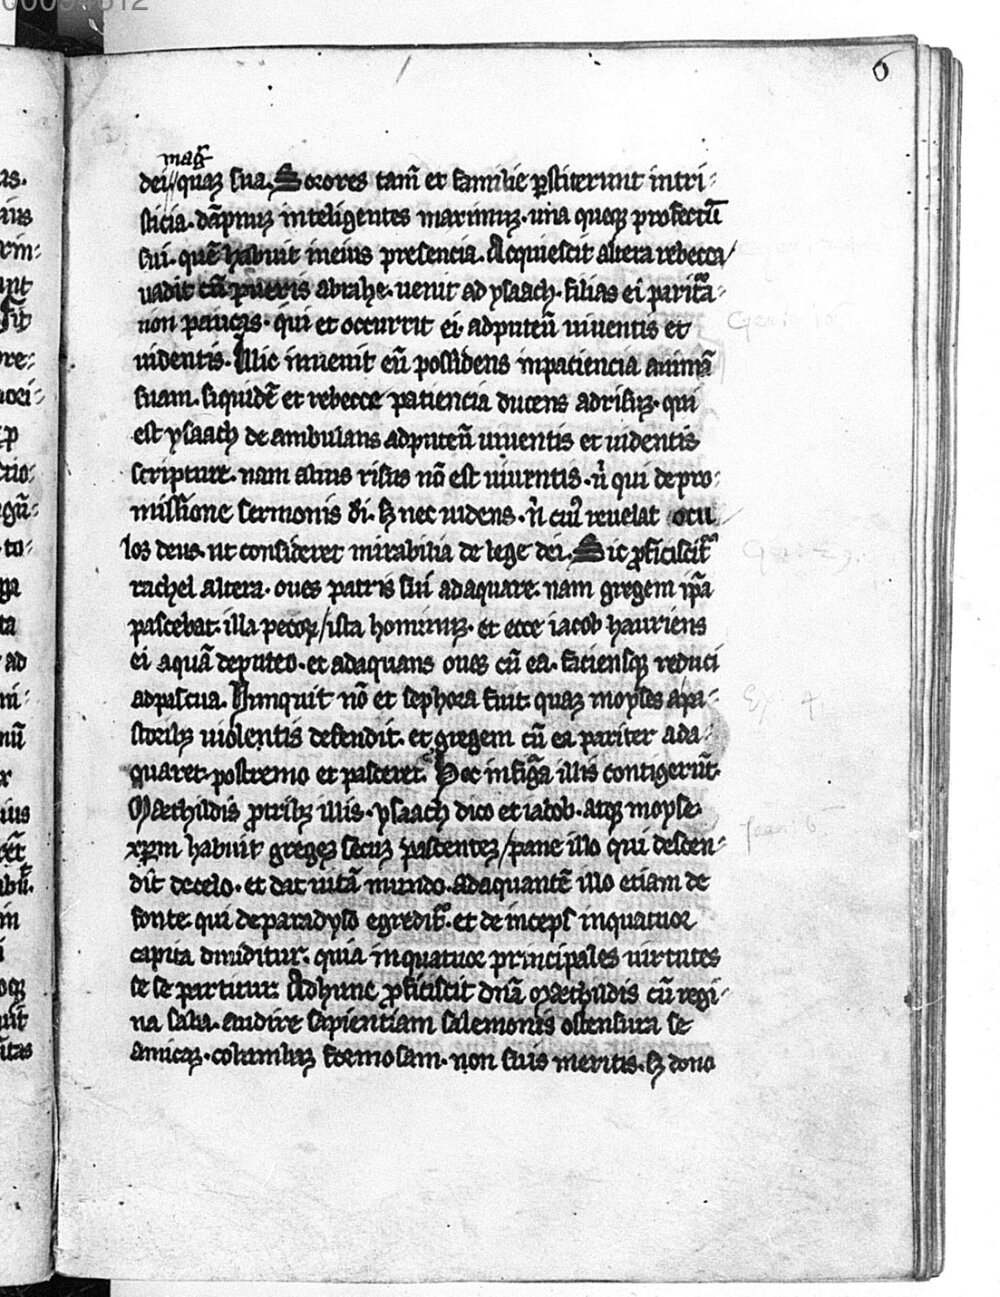 6
mag̃
dei quaȝ sua. Sorores tam̃ et familie ꝑstiterunt intri-
sticia. dãpnuȝ inteligentes maximuȝ. una queqȝ profectũ
sui. quẽ habuit in eius presencia. Acquiescit altera rebecca
uadit cũ pueris abrahe. uenit ad ysaach. filias ei paritᷓa-
non paucas. qui et occurrit ei. ad puteũ uiuentis et
uidentis. Illic inuenit eũ possidens in paciencia animã
suam. siquidẽ et rebecce patiencia ducens ad risuȝ. qui
est ysaach de ambulans ad puteũ uiuentis et uidentis
scripture. nam alius risus nõ est uiuentis. ñ qui de pro-
missione sermonis di̅. sȝ nec uidens. ñ cui᷒ reuelat ocu
los deus. ut consideret mirabilia de lege dei. Sic ꝓficiscit᷑
rachel altera. oues patris sui adaquare. nam gregem ip̃a
pascebat. illa pecoꝝ / ista hominuȝ. et ecce iacob hauriens
ei aquã de puteo. et adaquans oues cũ ea. faciensqȝ reduci
ad pascua. Nunquit nõ et sephora fuit quaȝ moyses a pa-
storibȝ uiolentis defendit. et gregem cũ ea pariter ada-
quaret. postremo et pasceret. Hoc in figᷓa illis contigerũt.
Mæchildis ꝑtribȝ illis. ysaach dico et iacob. atqȝ moyse.
xp̃m habuit greges secuȝ pascenteȝ / pane illo qui descen-
dit de celo. et dat uitã mundo. Adaquantẽ illo etiam de
fonte qui de paradyso egredit᷑. et de inceps in quatuor
capita diuiditur. quia in quatuor principales uirtutes
se se partitur. Adhunc ꝓficiscit dñã Mæchildis cũ regi-
na saba. audire sapientiam salemonis ostensura se
amicaȝ. columbaȝ formosam. non suis meritis. sȝ dono